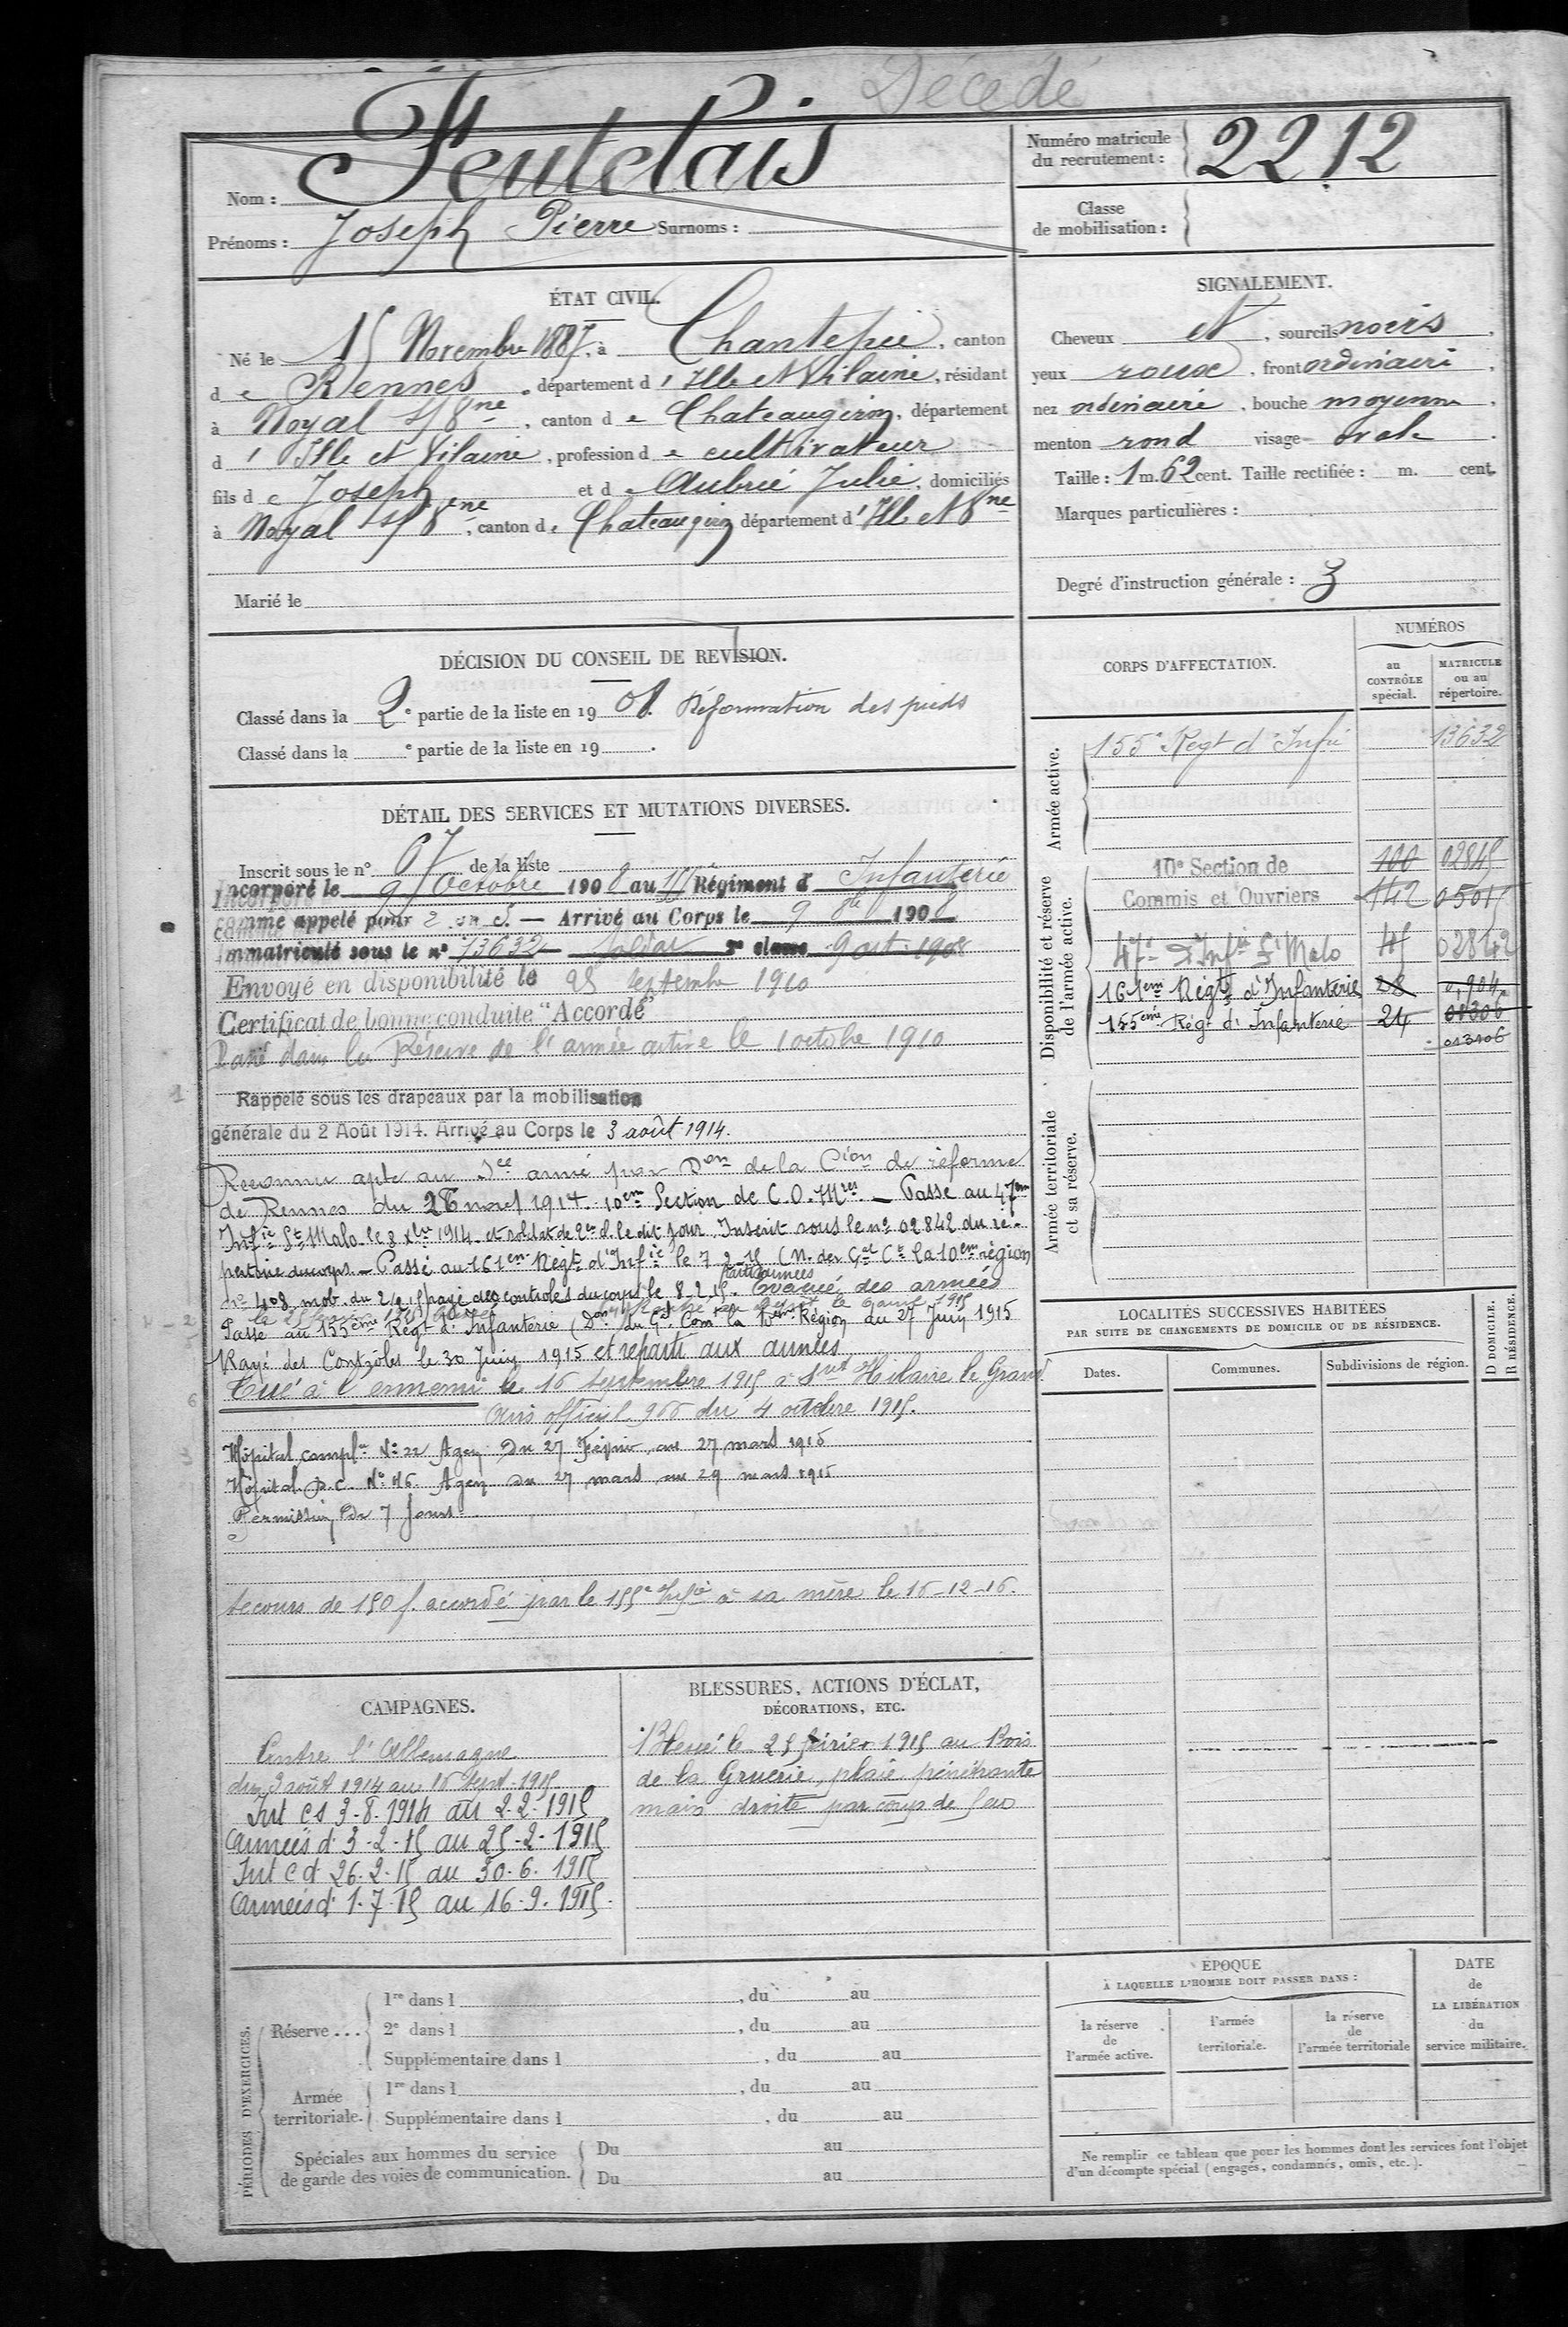 Décédé
Nom : Feutelais
Prénoms : Joseph Pierre Surnoms :
Numéro matricule du recrutement : 2212
Classe de mobilisation :
ÉTAT CIVIL.
Né le 15 Novembre 1887, à Chantepie, canton
d e Rennes, département d' Ille et Vilaine, résidant
à Noyal s/ Vne, canton d e Chateaugiron, département
d' Ille et Vilaine, profession d e cultivateur
fils d e Joseph et d Aubrée Julie, domiciliés
à Noyal s/ Vne, canton d e Chateaugiron département d' Ille et Vne
Marié le
SIGNALEMENT.
Cheveux et, sourcils noirs,
yeux roux, front ordinaire,
nez ordinaire, bouche moyenne,
menton rond visage ovale.
Taille : 1 m. 62 cent. Taille rectifiée : m. cent.
Marques particulières :
Degré d'instruction générale : 3
DÉCISION DU CONSEIL DE REVISION.
Classé dans la 2e partie de la liste en 1908. Déformation des pieds
Classé dans la e partie de la liste en 19 .
DÉTAIL DES SERVICES ET MUTATIONS DIVERSES.
Inscrit sous le n° 67 de la liste
Incorporé le 9 Octobre 1908 au Régiment d' Infanterie
comme appelé pour 2 ans. — Arrivé au Corps le 9 8bre 1908
Immatriculé sous le n° 13632 soldat 2e classe 9 oct. 1908
Envoyé en disponibilité le 25 septembre 1910
Certificat de bonne conduite "Accordé"
Passé dans la Réserve de l'armée active le 1 octobre 1910
Rappelé sous les drapeaux par la mobilisation
générale du 2 Août 1914. Arrivé au Corps le 3 août 1914.
Reconnu apte au Sce armé par Don de la Cion de réforme
de Rennes du 26 novs 1914. 10em Section de C.O.Mres — Passé au 47em
Infie St Malo le 8 xbre 1914 et soldat de 2e cl. le dit jour. Inscrit sous le n° 02842 du ré-
pertoire du corps. — Passé au 161em Régt d'Infie le 7-2-15 (N. du Gal Ct la 10em région
n° 408 mob. du 2/2.15) rayé des controles du corps le 8-2-15. Evacué des armées
Passé au 155ème Régt d'Infanterie (Don du Gl Comt la 10em Région du 27 Juin 1915
Rayé des Contrôles le 30 Juin 1915 et reparti aux armées
Tué à l'ennemi le 16 septembre 1915 à St Hilaire le Grand
Avis officiel 966 du 4 octobre 1915.
Hôpital complre N° 22 Agen du 27 Février au 27 mars 1915
Hôpital D.C. N° 46 Agen du 27 mars au 29 mars 1915
Permission de 7 jours
Secours de 150 f. accordé par le 155e Infie à sa mère le 16-12-16.
CORPS D'AFFECTATION.
NUMÉROS
au CONTRÔLE spécial.
MATRICULE ou au répertoire.
Armée active.
155e Regt d'Infie 13632
Disponibilité et réserve de l'armée active.
10e Section de 100 02845
Commis et Ouvriers 142 05015
47e d'Infie St Malo 02842
161em Régt d'Infanterie 28
155ème Régt d'Infanterie 24 01306
013106
Armée territoriale et sa réserve.
LOCALITÉS SUCCESSIVES HABITÉES
PAR SUITE DE CHANGEMENTS DE DOMICILE OU DE RÉSIDENCE.
Dates. Communes. Subdivisions de région.
D DOMICILE. R RÉSIDENCE.
CAMPAGNES.
Contre l'Allemagne
du 3 août 1914 au 16 Sept. 1915
Int cs 3-8-1914 au 2-2-1915
Armées d. 3-2-15 au 25-2-1915
Int c d 26-2-15 au 30-6-1915
Armées d. 1-7-15 au 16-9-1915.
BLESSURES, ACTIONS D'ÉCLAT,
DÉCORATIONS, ETC.
Blessé le 25 février 1915 au Bois
de la Gruerie, plaie pénétrante
main droite par coup de feu
PÉRIODES D'EXERCICES.
Réserve ...
1re dans l , du au
2e dans l , du au
Supplémentaire dans l , du au
Armée territoriale.
1re dans l , du au
Supplémentaire dans l , du au
Spéciales aux hommes du service
de garde des voies de communication.
Du au
Du au
ÉPOQUE
À LAQUELLE L'HOMME DOIT PASSER DANS :
la réserve de l'armée active.
l'armée territoriale.
la réserve de l'armée territoriale
DATE de LA LIBÉRATION du service militaire.
Ne remplir ce tableau que pour les hommes dont les services font l'objet
d'un décompte spécial (engagés, condamnés, omis, etc.).